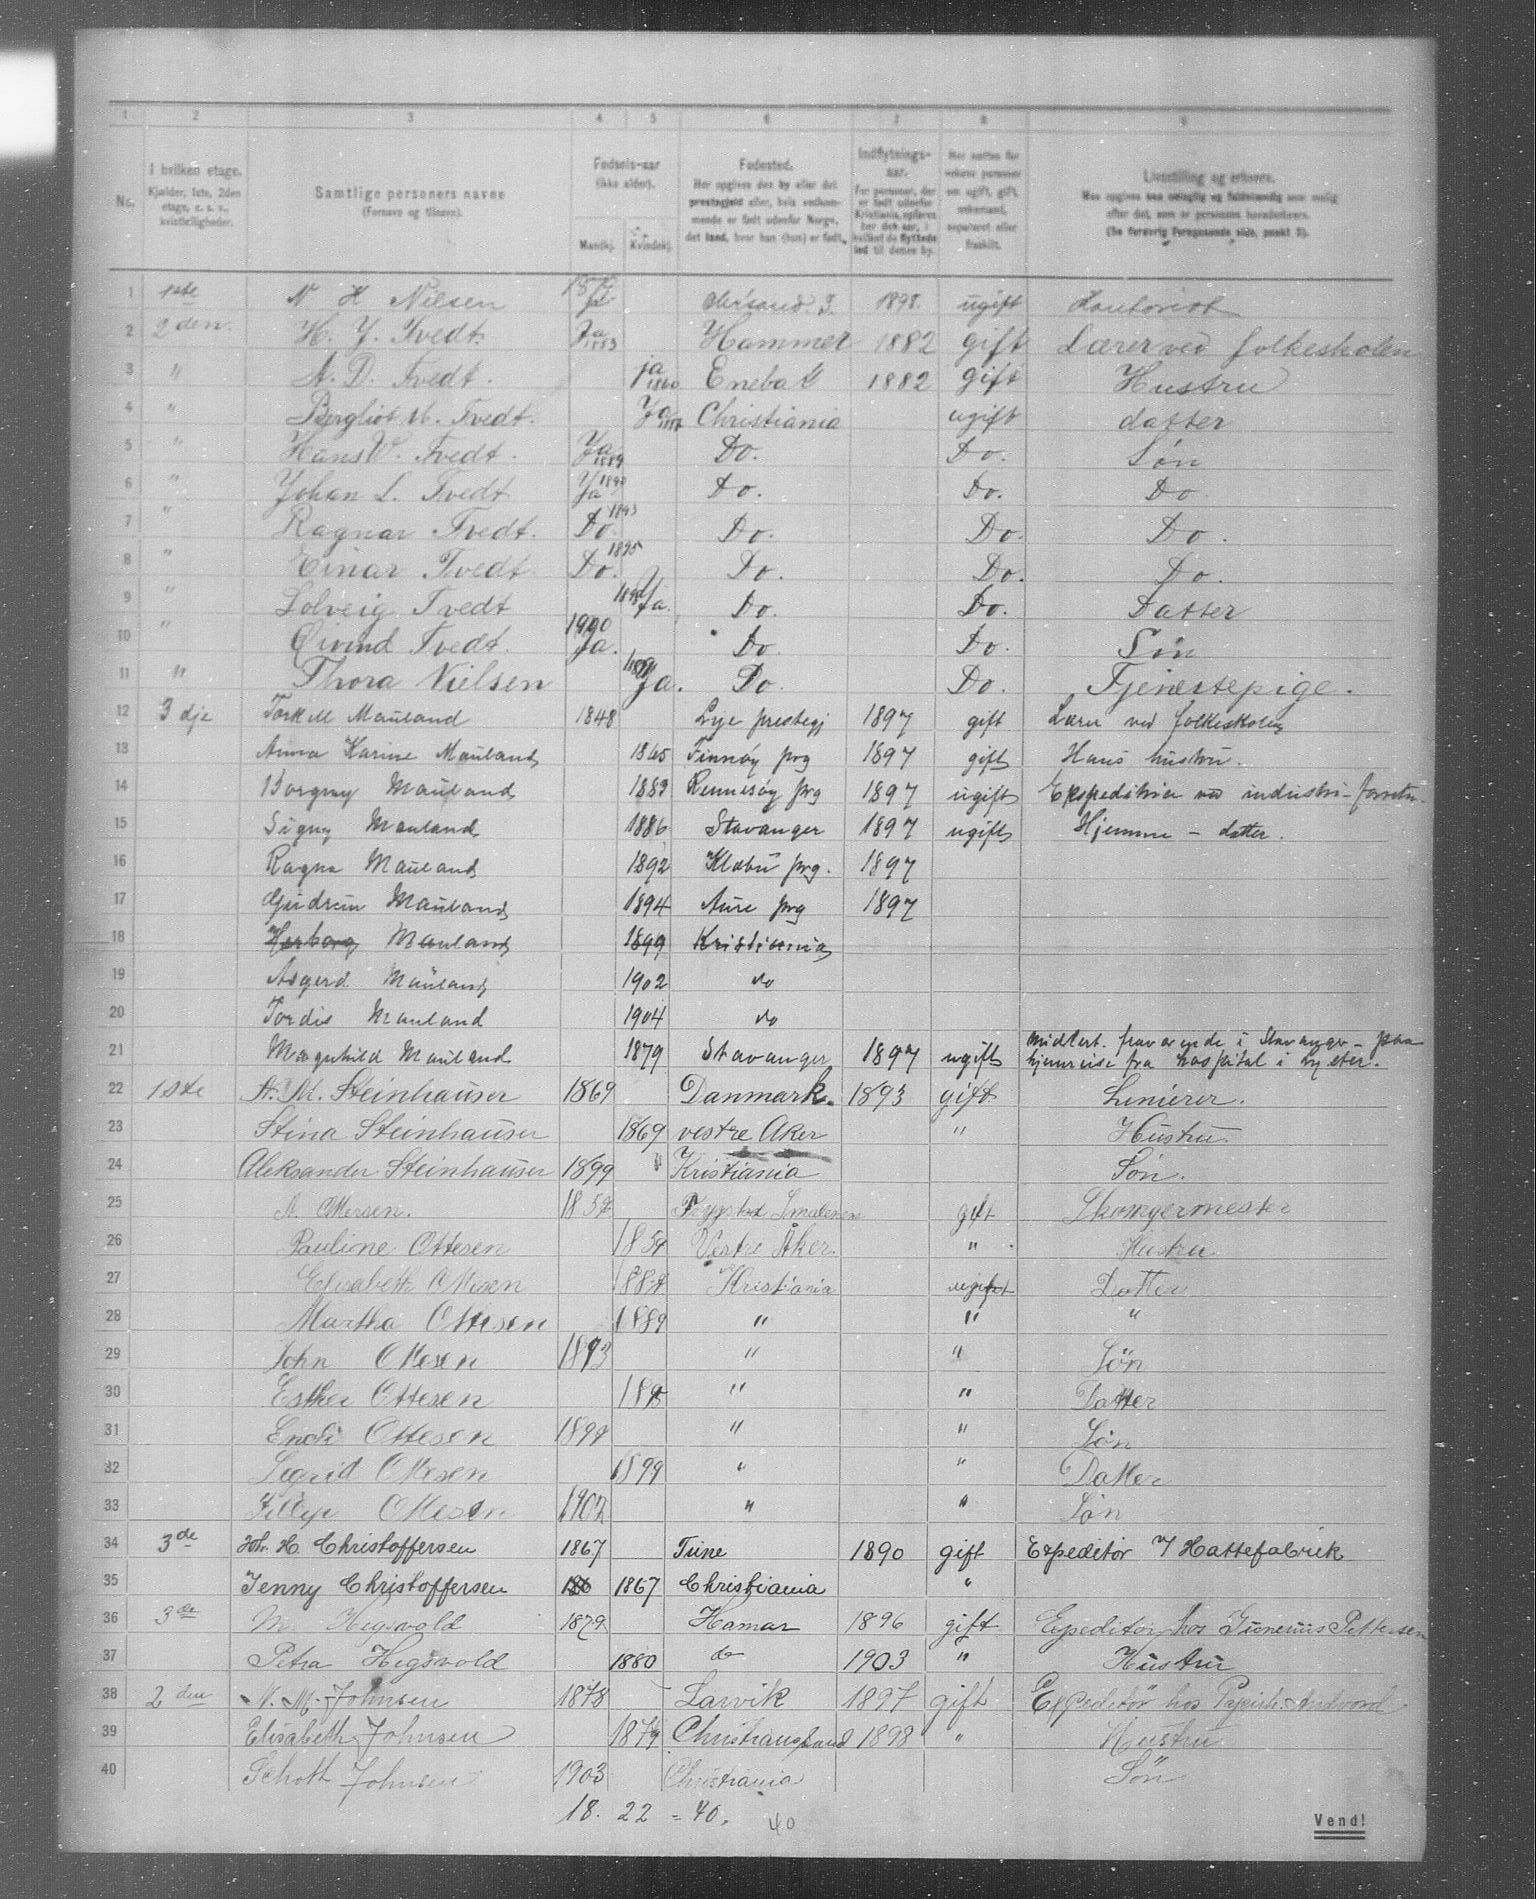 1 2 3 4 5 6 7 8 9
No. I hvilken etage. Kjælder, 1ste, 2den etage, o. s. v., kvistleiligheder. Samtlige personers navne (Fornavn og tilnavn). Fødsels-aar (ikke alder). Mandkj. Kvindekj. Fødested. Her opgives den by eller det prestegjeld eller, hvis vedkommende er født udenfor Norge, det land, hvor han (hun) er født. Indflytnings-aar. For personer, der er født udenfor Kristiania, opføres her det aar, i hvilket de flyttede ind til denne by. Her sættes for voksne personer om ugift, gift, enkemand, separeret eller fraskilt. Livsstilling og erhverv. (Se forøvrig foregaaende side, punkt 3).
1 1ste N H Nielsen Ja 1898. ugift Kontorist
2 2den H. J. Tvedt. Ja 1853 Hammer 1882 gift Lærer ved folkeskolen
3 " A. D. Tvedt. ja 1860 Enebak 1882 gift Hustru
4 " Bergliot M. Tvedt. Ja Christiania ugift datter
5 " Hans V. Tvedt. Ja 1889 Do. Do. Søn
6 " Johan L. Tvedt Ja Do. Do. Do
7 " Ragnar Tvedt. Do. 1893 Do. Do. Do.
8 " Einar Tvedt Do. 1895 Do. Do. Do.
9 " Solveig Tvedt Ja. Do. Do. Datter
10 " Øivind Tvedt. 1900 Ja. Do. Do. Søn
11 " Thora Nielsen Ja. Do. Do. Tjenestepige.
12 3dje Torkell Mauland 1848 Lye prestegj 1897 gift Lærer ved folkeskolen
13 Anna Karine Mauland 1865 Finnøy prg 1897 gift Hans hustru.
14 Borgny Mauland 1883 Rennesøy prg 1897 ugift Expeditrice ved industri-forretn.
15 Signy Mauland 1886 Stavanger 1897 ugift Hjemme - datter.
16 Ragna Mauland 1892 Klæbu prg. 1897
17 Gudrun Mauland 1894 Aure prg 1897
18 Herborg Mauland 1899 Kristiania
19 Asgerd Mauland 1902 do
20 Tordis Mauland 1904 do
21 Magnhild Mauland 1879 Stavanger 1897 ugift midlert. fraværende i Stavanger - paa
hjemreise fra hospital i
22 1ste A. M. Steinhauser 1869 Danmark. 1893 gift Liniérer.
23 Stina Steinhauser 1869 vestre Aker " Hustru.
24 Aleksander Steinhauser 1899 " Kristiania Søn.
25 A. Ottersen. Smalenen gift Skomagermester
26 Pauline Ottesen Vestre Aker. " Hustru
27 Elisabeth Ottesen Kristiania ugift Datter
28 Martha Ottesen 1889 " " "
29 John Ottesen 1893 " " Søn
30 Esther Ottesen " " Datter
31 Ottesen " " Søn
32 Sigrid Ottesen 1899 " " Datter
33 Fillip Ottesen 1902 " " Søn
34 3de Joh. H. Christoffersen 1867 Tune 1890 gift Expeditør i Hattefabrik
35 Jenny Christoffersen 186 1867 Christiania "
36 3de M. Hegsvold 1879 Hamar 1896 gift Expeditør hos Gunerius Pettersen
37 Petra Hegsvold 1880 do 1903 " Hustru
38 2den N. M. Johnsen 1878 Larvik 1897 gift Expeditør hos Andvord
39 Elisabeth Johnsen 1879 Christianssand 1898 " Hustru
40 Schott Johnsen 1903 Christiania Søn
18. 22 = 40. 40
Vend!